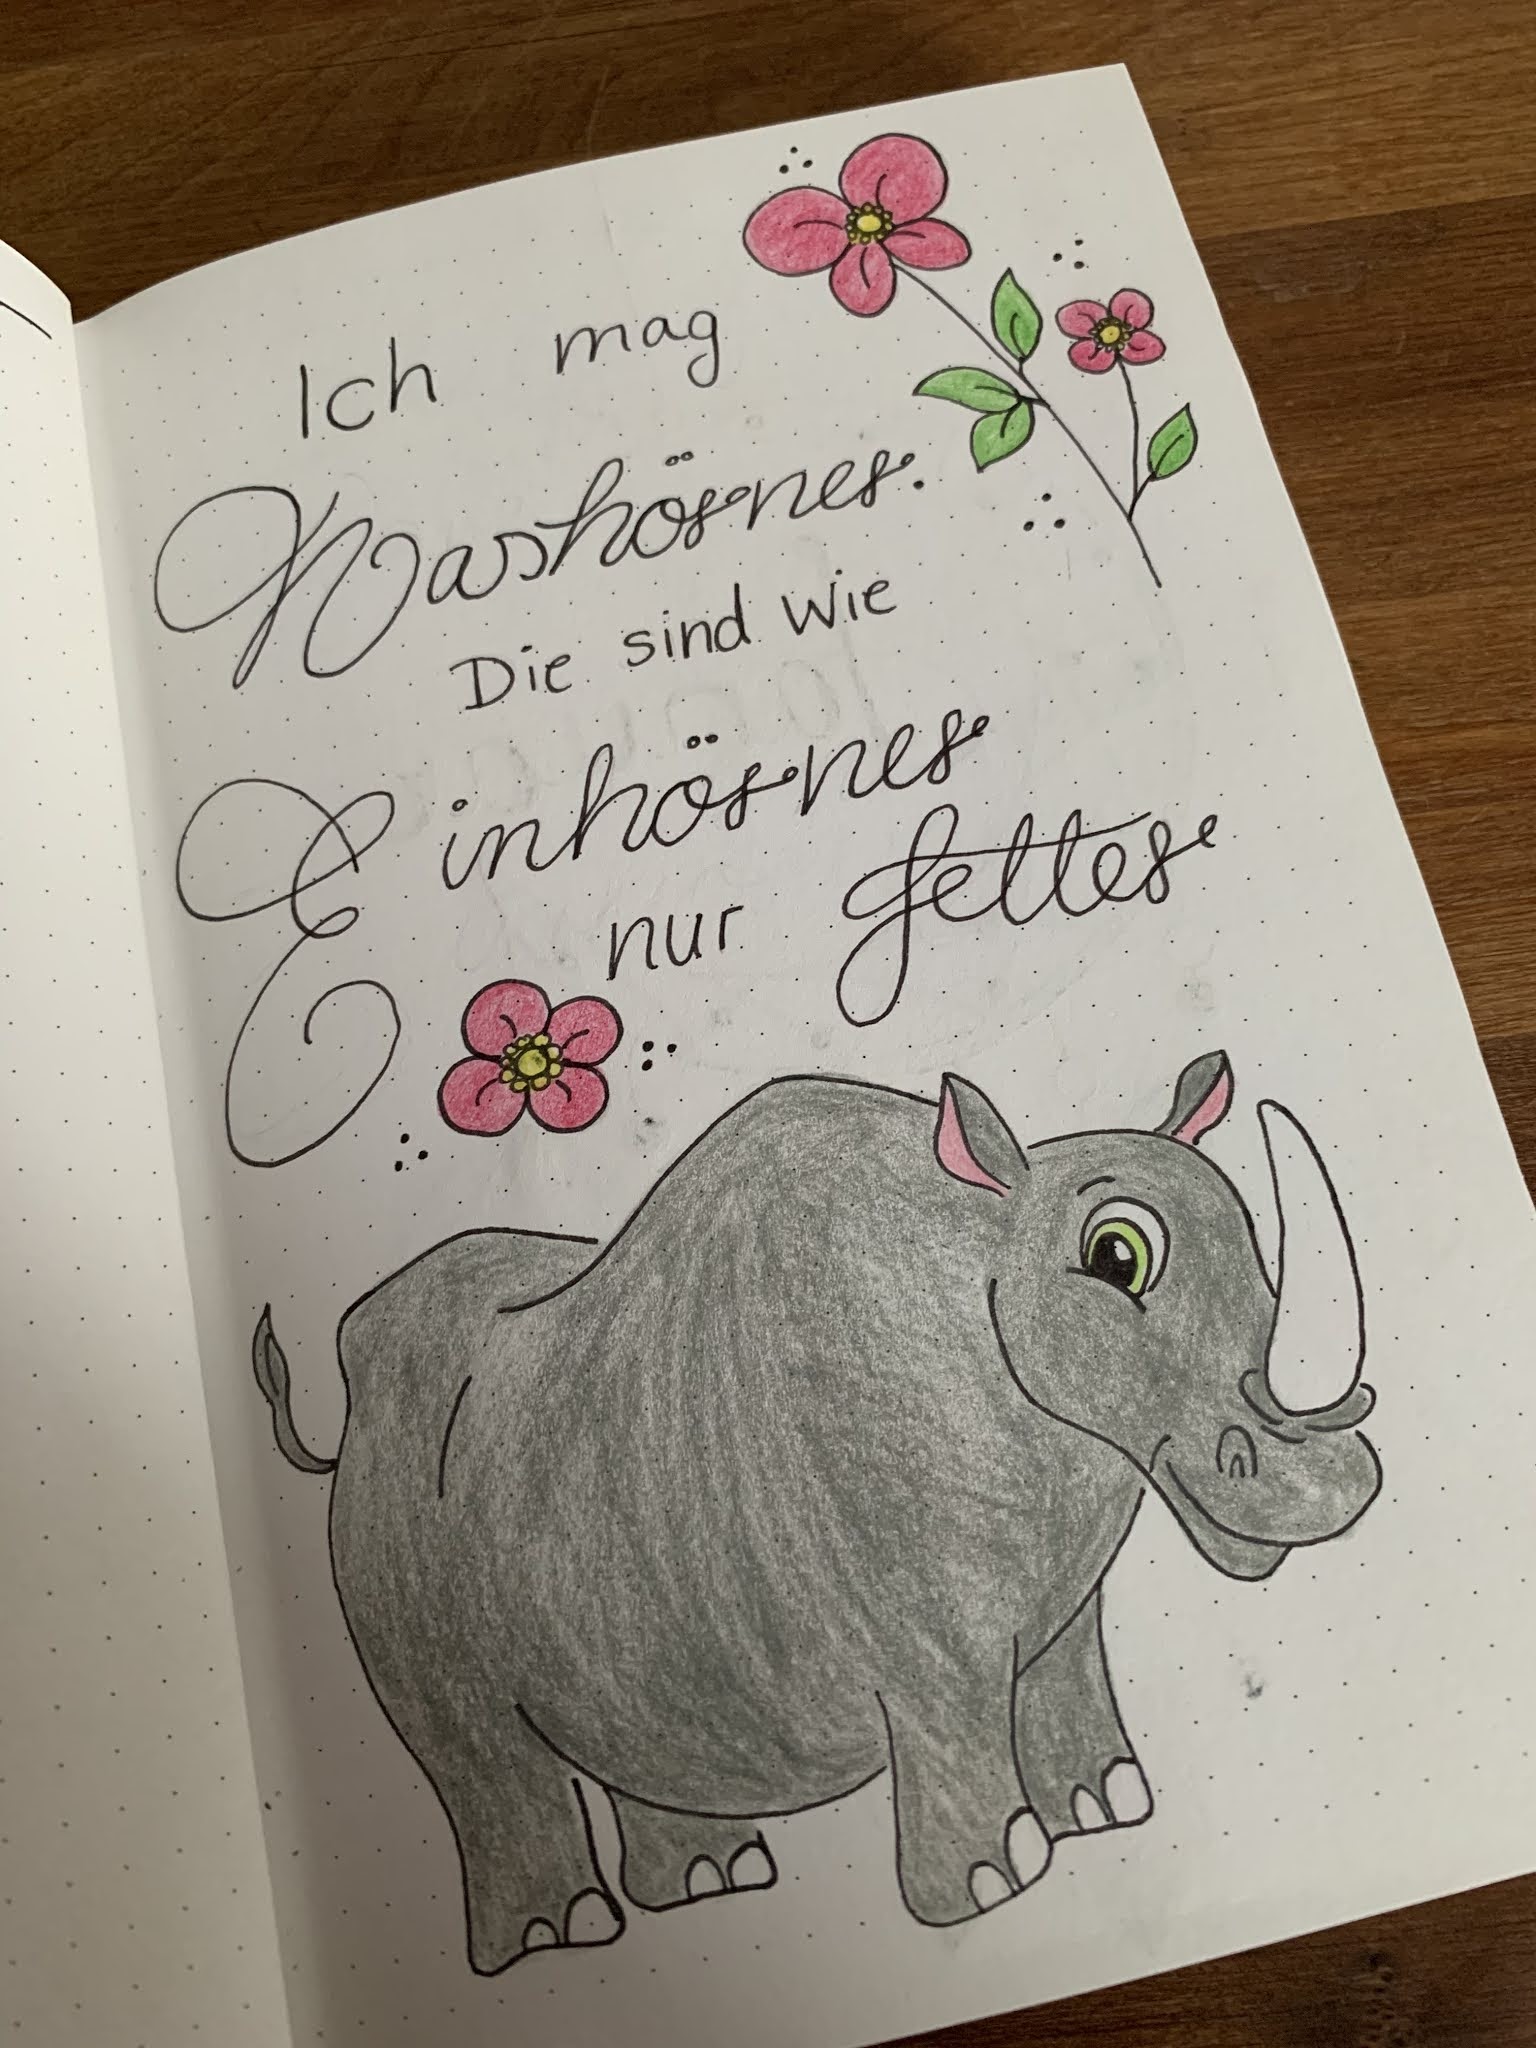 Ich mag
Nashörner.
Die sind wie
Einhörner
nur fetter